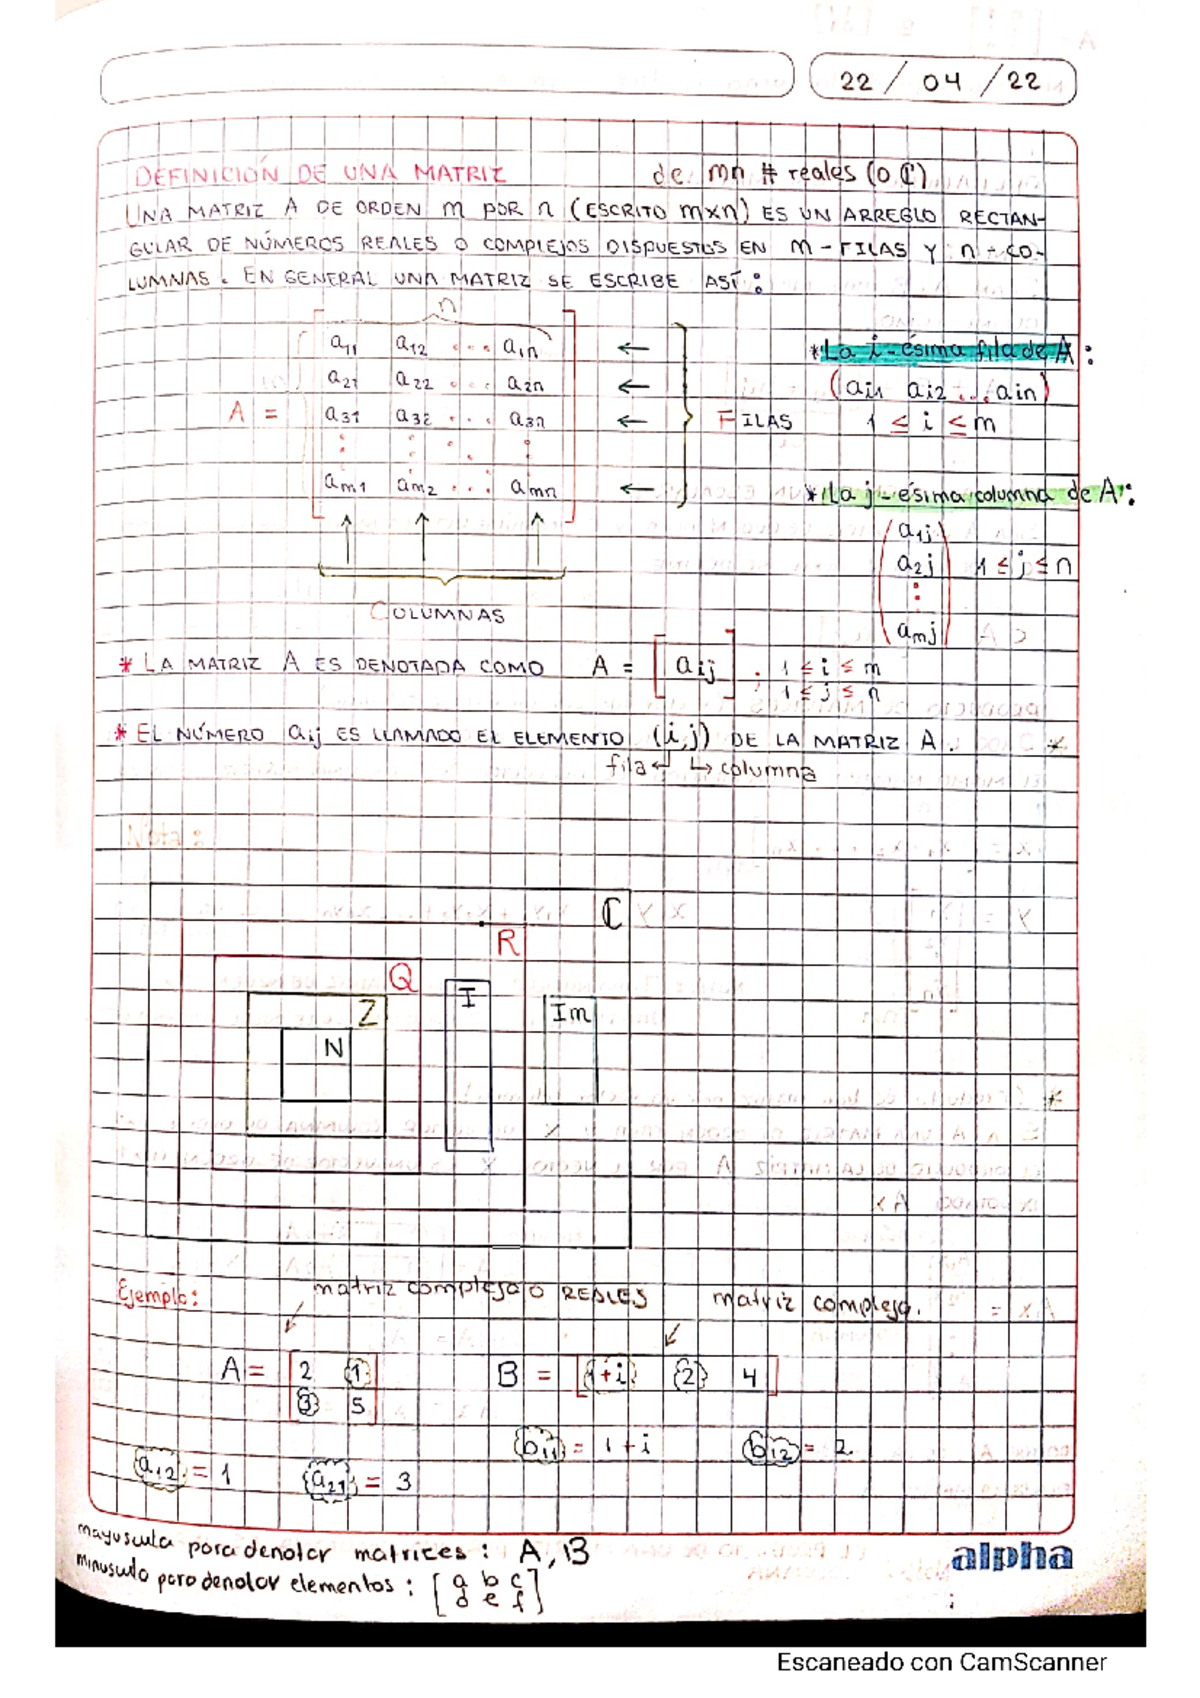 22 / 04 / 22
DEFINICIÓN DE UNA MATRIZ de mn # reales (o ℂ)
UNA MATRIZ A DE ORDEN m POR n (ESCRITO m×n) ES UN ARREGLO RECTAN-
GULAR DE NÚMEROS REALES O COMPLEJOS DISPUESTOS EN m-FILAS Y n-CO-
LUMNAS. EN GENERAL UNA MATRIZ SE ESCRIBE ASÍ:
n
A =
a11 a12 ... a1n ←
a21 a22 ... a2n ←
a31 a32 ... a3n ←
⋮ ⋮ ⋱ ⋮
am1 am2 ... amn ←
FILAS
COLUMNAS
*La i-ésima fila de A:
(ai1 ai2 ... ain)
1 ≤ i ≤ m
* La j-ésima columna de A:
a1j
a2j 1 ≤ j ≤ n
⋮
amj
* LA MATRIZ A ES DENOTADA COMO A = [aij] ; 1 ≤ i ≤ m
1 ≤ j ≤ n
* EL NÚMERO aij ES LLAMADO EL ELEMENTO (i,j) DE LA MATRIZ A.
fila ↵ ↳ columna
Nota:
ℂ
R
Q
I
Z
Im
N
Ejemplo: matriz compleja o REALES matriz compleja.
A = [2 1
3 5]
B = [1+i 2 4]
b11 = 1 + i b12 = 2
a12 = 1 a21 = 3
mayuscula para denotar matrices: A, B
minusculo para denotar elementos: [a b c
d e f]
alpha
Escaneado con CamScanner